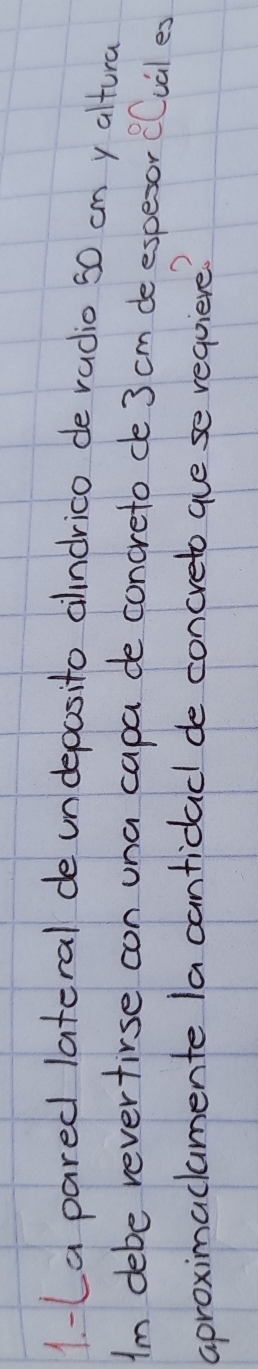 1.- La pared lateral de un deposito cilindrico de radio 50 cm y altura
1m debe revertirse con una capa de concreto de 3 cm de espesor ¿Cuál es
aproximadamente la cantidad de concreto que se requiere?